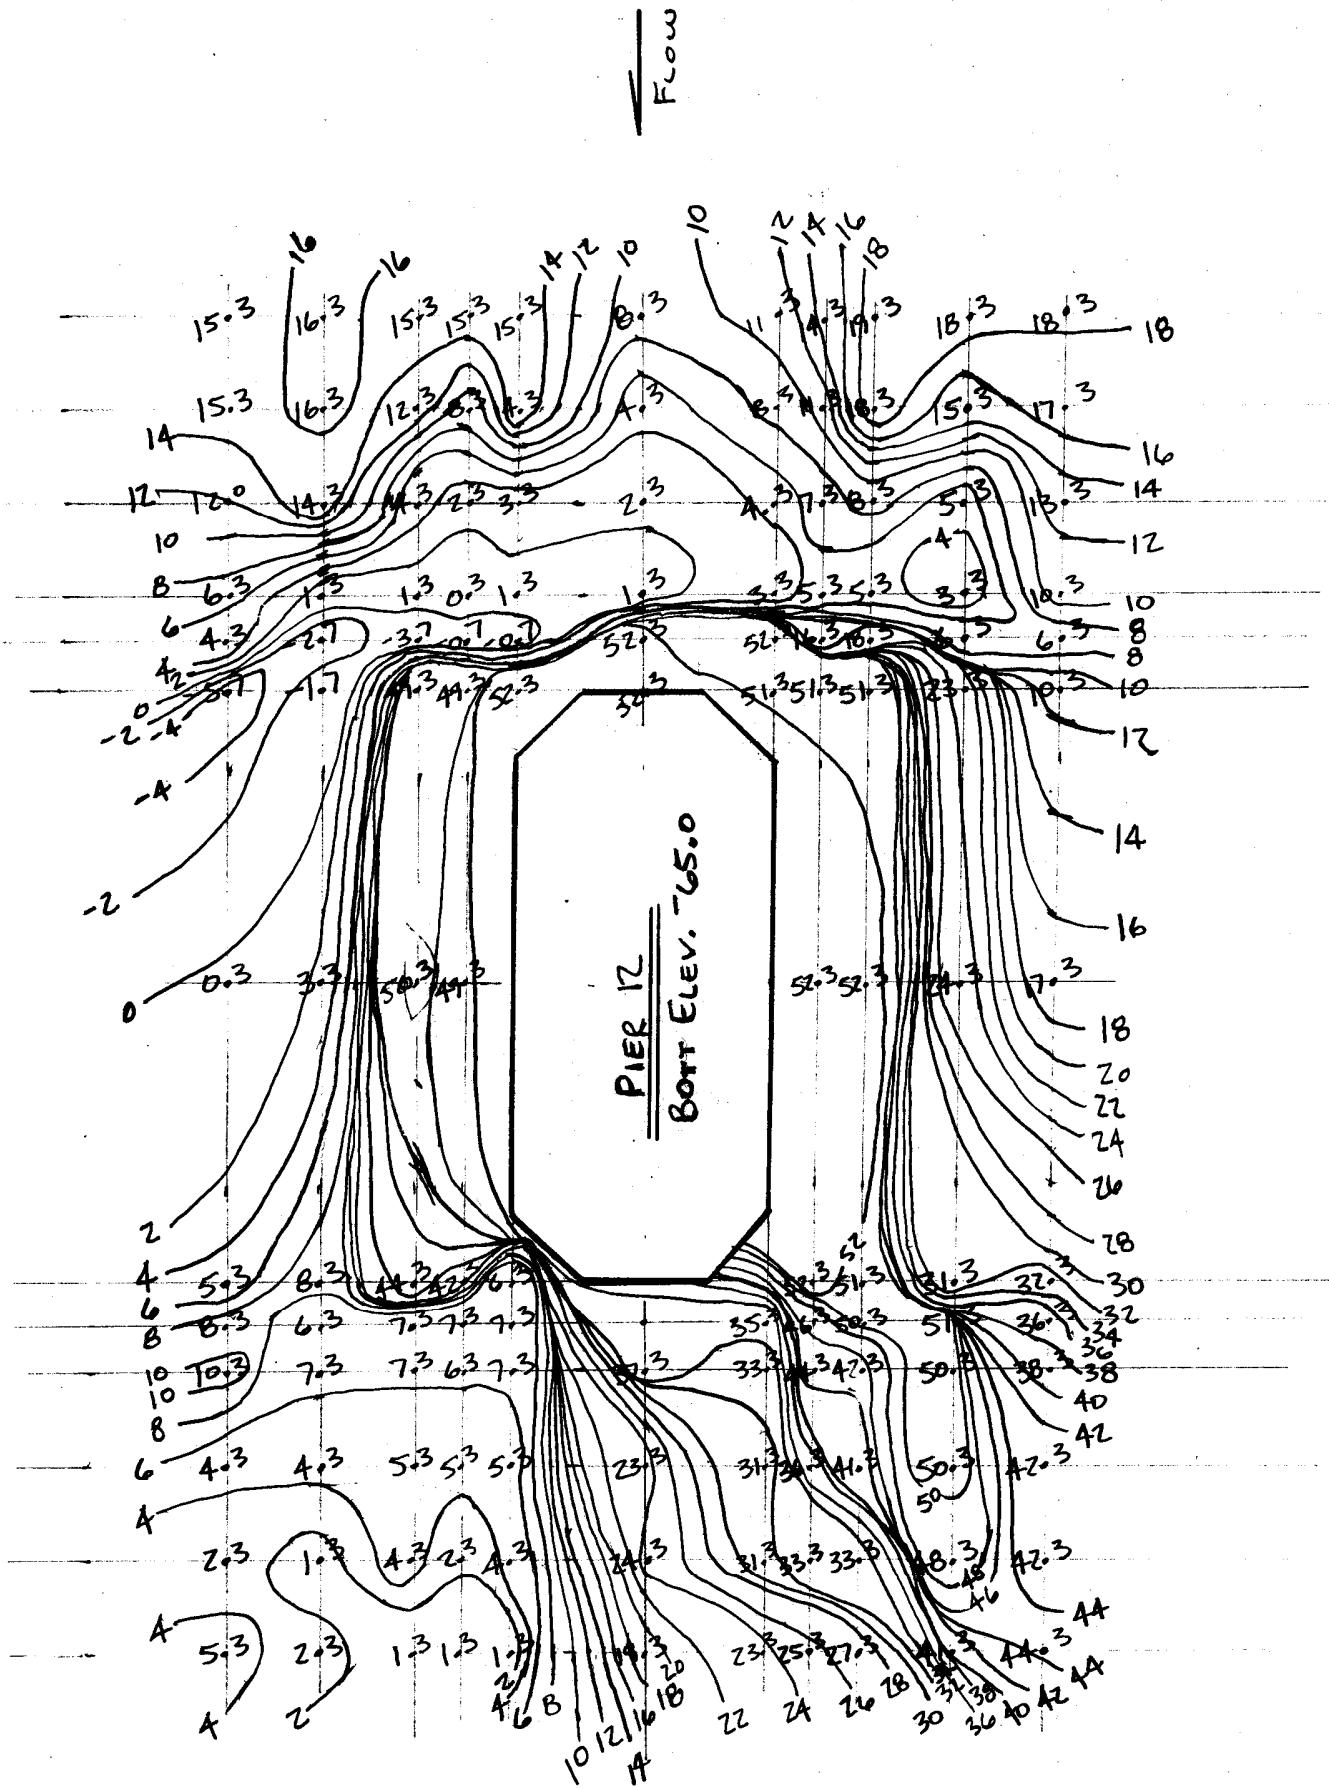 FLOW
10
12
14
16
18
16
16
14
12
10
15.3 16.3 15.3 15.3 15.3 8.3 11.3 19.3 18.3 18.3
18
15.3 16.3 12.3 8.3 4.3 4.3 8.3 15.3 17.3
14
16
12 12.0 14.3 2.3 3.3 2.3 4.3 7.3 8.3 5.3 13.3
14
10
4
12
8 6.3 1.3 1.3 0.3 1.3 1.3 3.3 5.3 5.3 3.3 10.3
10
6 4.3 -2.7 -3.7 -0.7 -0.7 52.3 52.3 16.3 6.3
8
8
4
2 -1.7 49.3 52.3 52.3 51.3 51.3 51.3 23.3 10.3
10
0
-2 -4
12
-4
14
-2
16
PIER 12
BOTT ELEV. -65.0
0.3 3.3 50.3 49.3 52.3 52.3 24.3 7.3
0
18
20
22
24
26
2
28
52
4 5.3 8.3 44.3 42.3 6.3 52.3 51.3 51.3 32.3
30
6
8 8.3 6.3 7.3 7.3 7.3 35.3 46.3 50.3 51.3 36.3
32
34
36
10 10.3 7.3 7.3 6.3 7.3 37.3 33.3 44.3 42.3 50.3 38.3
38
10
40
8
42
6 4.3 4.3 5.3 5.3 5.3 23.3 31.3 41.3 50.3 42.3
50
4
2.3 1.3 4.3 2.3 4.3 24.3 31.3 33.3 33.3 48.3 42.3
48
46
44
4
5.3 2.3 1.3 1.3 1.3 19.3 23.3 25.3 27.3 41.3 44.3
44
4 2 2 4 6 8 10 12 14 16 18 20 22 24 26 28 30 32 36 38 40 42